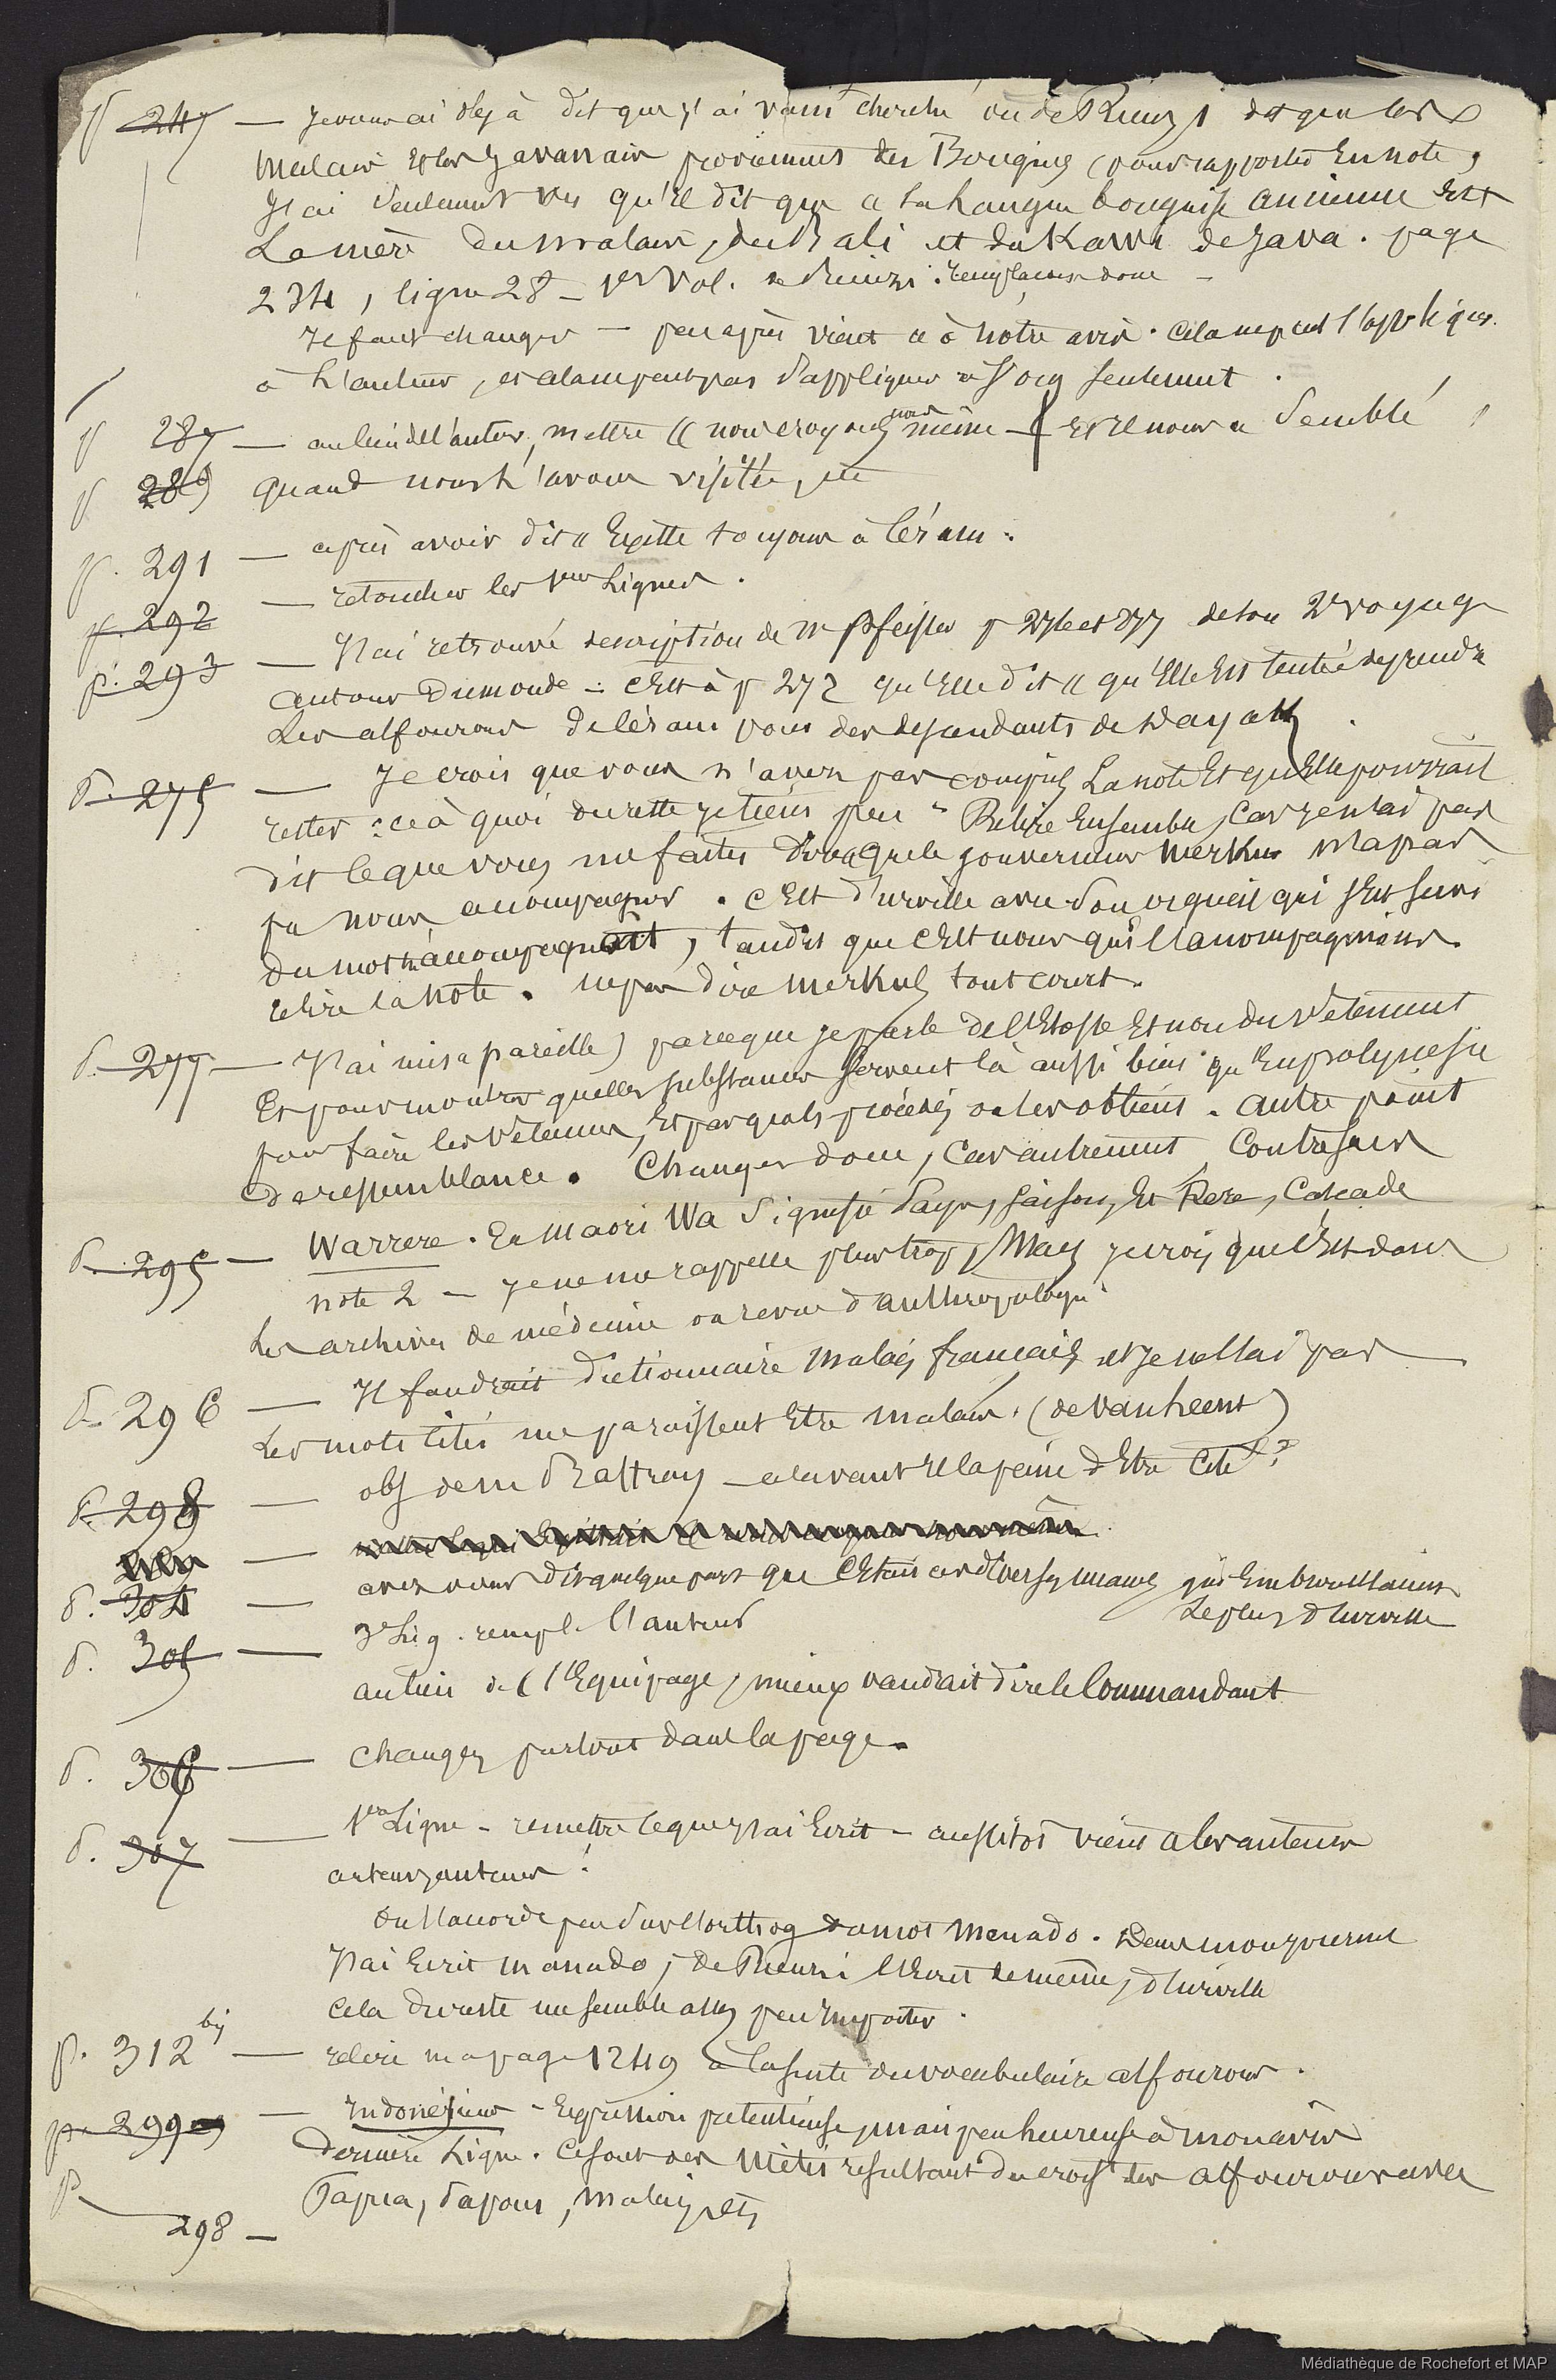 p 247 — Je vous ai déjà dit que j'ai vain cherché où de Rienzi dit que les
Malais et les Javanais proviennent des Bouguis (vous rapportez en note,
J'ai seulement vu qu'il dit que « la langue bouguise ancienne est
La mère du malais, du Bali et du Kawi de Java. page
234, ligne 28 — 1er Vol. de Rienzi. remplacer donc —
Il faut changer — peu après vient « à notre avis. cela ne peut s'appliquer
à l'auteur, et cela ne peut pas s'appliquer à seulement.
p 287 — au lieu de l'auteur, mettre « nous croyons nous même — et il nous a semblé
p 289 quand nous l'avons visitée, etc
p. 291 — après avoir dit « Existe toujours à Céram.
p. 292 — retoucher les 1eres Lignes.
p. 293 — J'ai retrouvé description de Me Pfeiffer p 276 et 277 de son 2e voyage
autour du monde — C'est à p 272 qu'Elle dit « qu'Elle est tentée de prendre
Les alfourous de Céram pour des descendants de Dayak.
p. 275 — Je crois que vous n'avez pas compris La note et qu'Elle pourrait
rester : ce à quoi du reste je tiens peu — Relire Ensemble, car je n'ai pas
dit ce que vous me faites dire « que le gouverneur Merkus n'a pas
pu nous accompagner. C'est d'urville avec son orgueil qui s'est servi
du mot « accompagnait, tandis que c'est nous qui l'accompagnions.
relire la note. ne pas dire Merkus tout court.
p. 277 — J'ai mis « pareille) parce que je parle de l'Etoffe et non du vêtement
Et pour montrer quelles substances servent là aussi bien qu'en polynésie
pour faire les vêtements, et par quels procédés on les obtient. autre point
de ressemblance. Changer donc, car autrement Contresens
p. 295 — Warrere. En Maori Wa signifie Pays, saison, et Rere, Cascade
note 2 — Je ne me rappelle plus trop, Mais je crois que c'est dans
Les archives de médecine ou revue d'anthropologie
p. 296 — Il faudrait dictionnaire Malais français et je ne l'ai pas
Les mots cités me paraissent être malais. (de vanheems)
p. 298 — obs de Mr d'Raffray — cela vaut il la peine d'être cité?
p. 304 — avez vous dit quelque part que c'était ces divers qui embrouillaient
Le plus d'Urville
p. 305 — 3e Lig. rempl. l'auteur
au lieu de l'Equipage, mieux vaudrait dire le Commandant
p. 306 — Changez partout dans la page.
p. 307 — 1ere Ligne — remettre ce que j'ai écrit — aussitôt vient « les auteurs
auteurs !
On s'accorde peu sur l'orthog du mot Menado. Dans
J'ai écrit Manado, de Rienzi l'écrit de même, d'Urville
Cela du reste me semble assez peu importer.
p. 312 bis — relire ma page 1249 à la suite du vocabulaire alfourous.
p. 299 — Indonésiens — Expression prétentieuse, mais peu heureuse à mon avis
p
298 — Dernière Ligne. Ce sont des Métis résultant du crois. des alfourous avec
Papua, Papous, Malais, etc